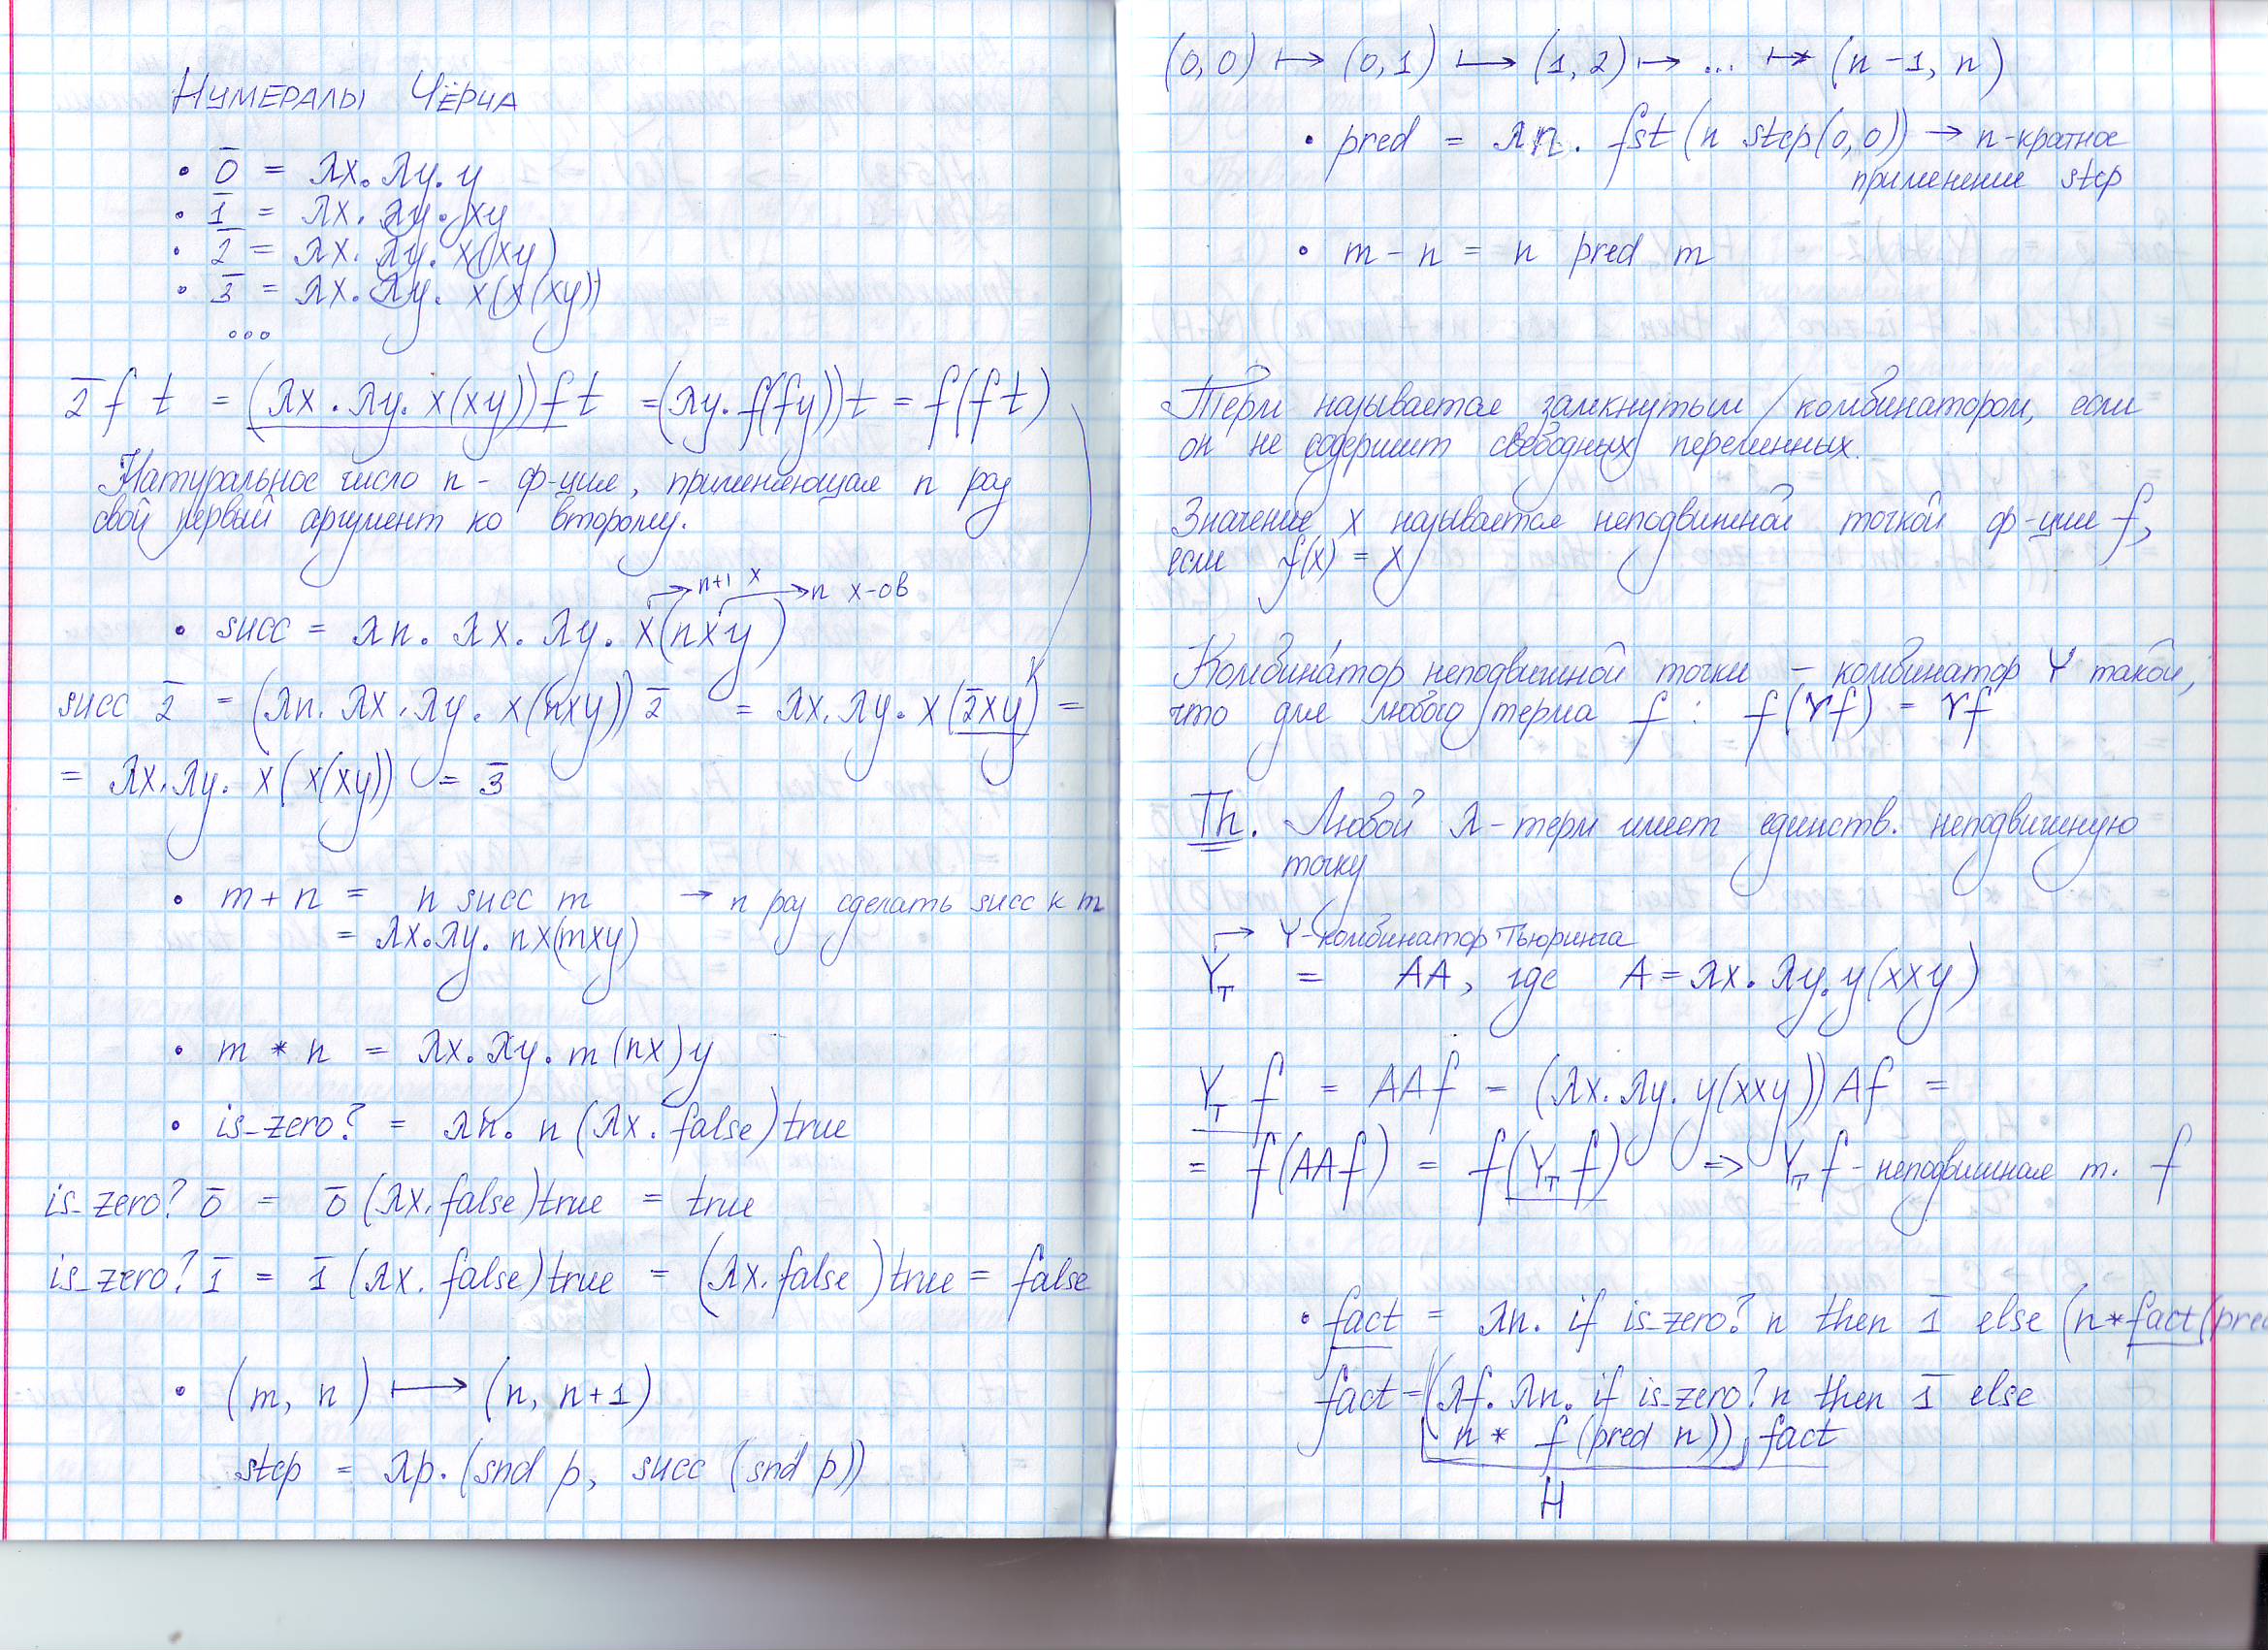 Нумералы Чёрча
• 0̅ = λx. λy. y
• 1̅ = λx. λy. xy
• 2̅ = λx. λy. x(xy)
• 3̅ = λx. λy. x(x(xy))
...
2̅ f t = (λx. λy. x(xy)) f t = (λy. f(fy)) t = f(f t)
Натуральное число n - ф-ция, применяющая n раз
свой первый аргумент ко второму.
→ n+1 x → n x-ов
• succ = λn. λx. λy. x(nxy)
succ 2̅ = (λn. λx. λy. x(nxy)) 2̅ = λx. λy. x(2̅xy) =
= λx. λy. x(x(xy)) = 3̅
• m + n = n succ m → n раз сделать succ к m
= λx. λy. nx(mxy)
• m * n = λx. λy. m(nx)y
• is_zero? = λn. n (λx. false) true
is_zero? 0̅ = 0̅ (λx. false) true = true
is_zero? 1̅ = 1̅ (λx. false) true = (λx. false) true = false
• (m, n) ⟼ (n, n+1)
step = λp. (snd p, succ (snd p))
(0,0) ⟼ (0,1) ⟼ (1,2) ⟼ ... ⟼ (n-1, n)
• pred = λn. fst (n step (0,0)) → n-кратное
применение step
• m - n = n pred m
Терм называется замкнутым / комбинатором, если
он не содержит свободных переменных.
Значение x называется неподвижной точкой ф-ции f,
если f(x) = x
Комбинáтор неподвижной точки - комбинатор Y такой,
что для любого терма f : f(Yf) = Yf
Th. Любой λ-терм имеет единств. неподвижную
точку
→ Y-комбинатор Тьюринга
Y_T = AA, где A = λx. λy. y(xxy)
Y_T f = AAf = (λx. λy. y(xxy)) Af =
= f(AAf) = f(Y_T f) => Y_T f - неподвижная т. f
• fact = λn. if is_zero? n then 1̅ else (n * fact (pred
fact = (λf. λn. if is_zero? n then 1̅ else
n * f (pred n)) fact
H